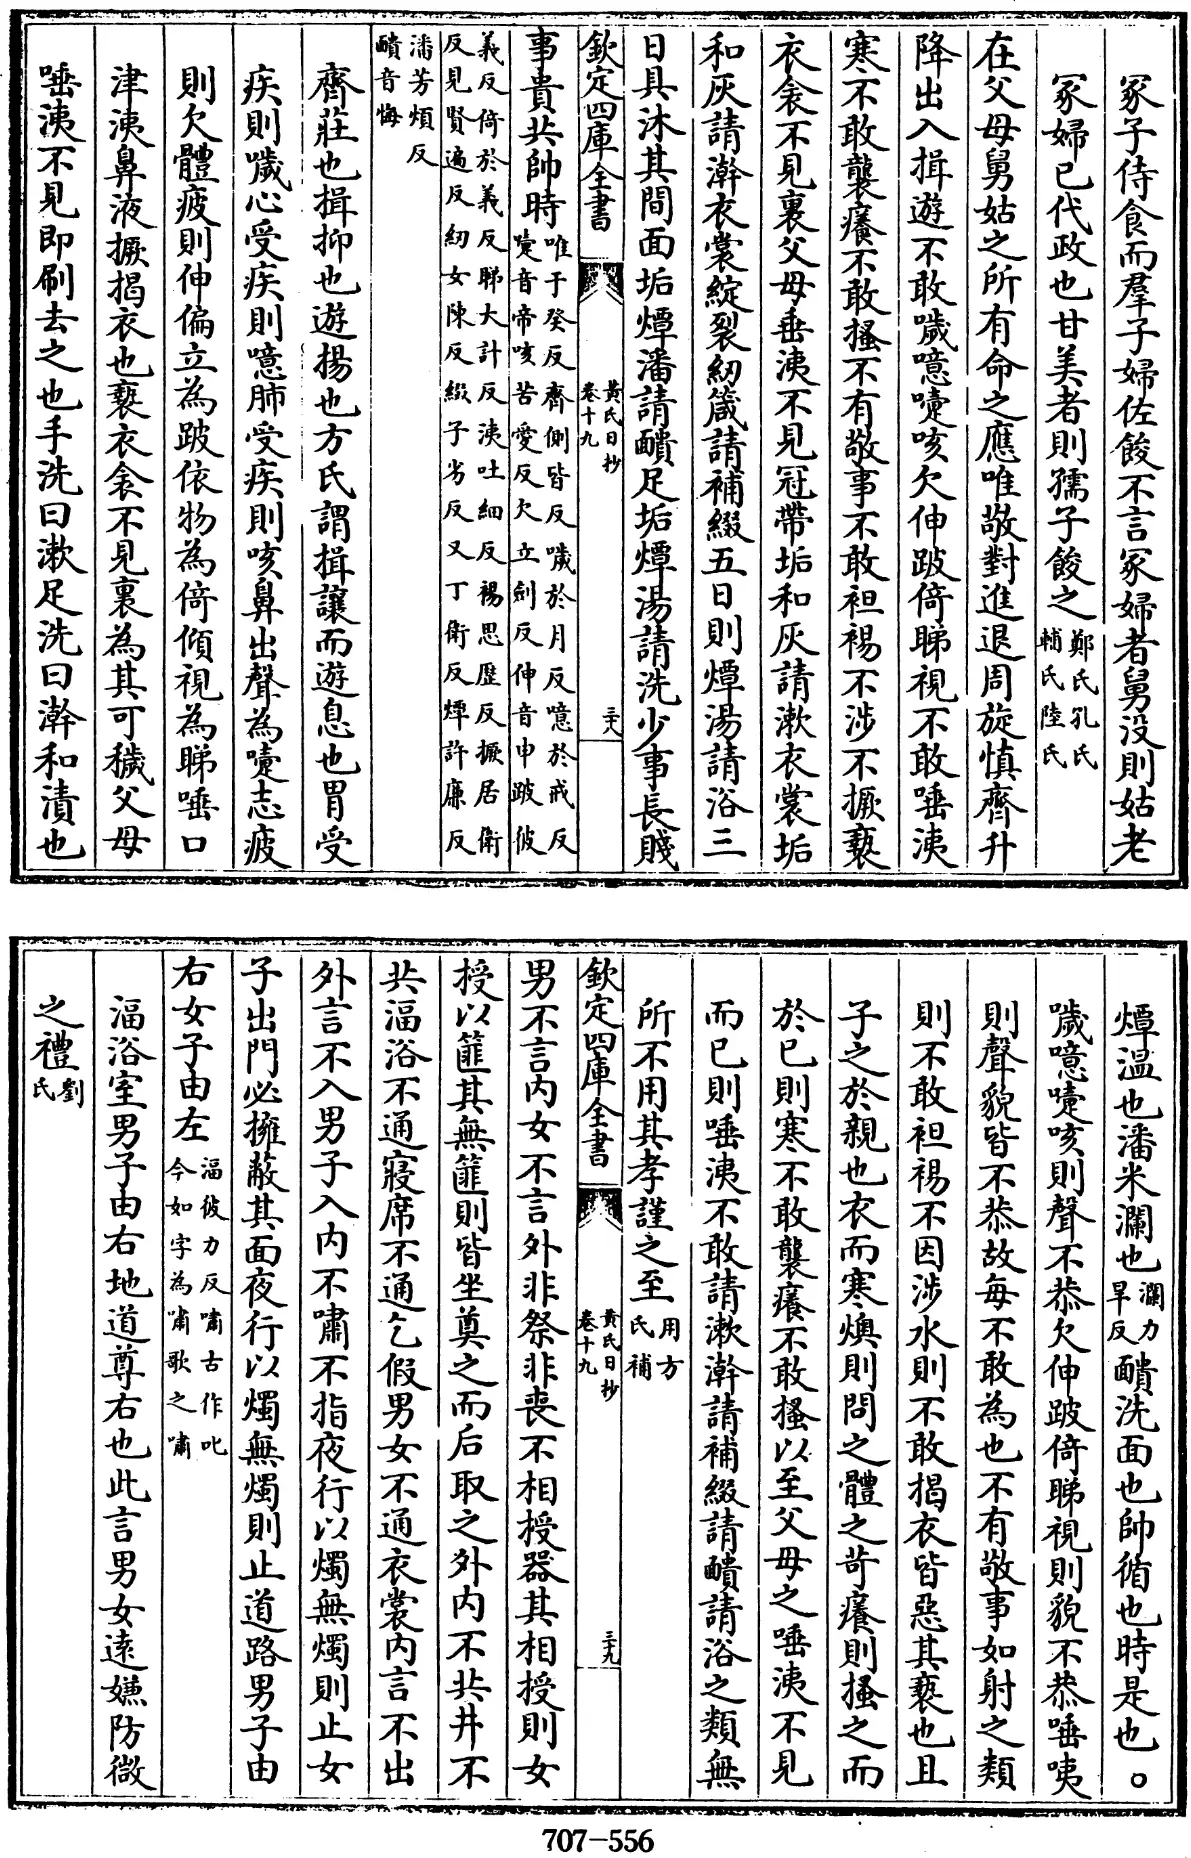 冡子侍食而羣子婦佐餕不言冡婦者舅没則姑老
冡婦已代政也甘美者則孺子餕之鄭氏孔氏輔氏陸氏
在父母舅姑之所有命之應唯敬對進退周旋慎齊升
降出入揖遊不敢噦噫嚏咳欠伸跛倚睇視不敢唾洟
寒不敢襲癢不敢搔不有敬事不敢袒裼不涉不撅褻
衣衾不見裏父母唾洟不見冠帶垢和灰請漱衣裳垢
和灰請澣衣裳綻裂紉箴請補綴五日則燂湯請浴三
日具沐其間面垢燂潘請靧足垢燂湯請洗少事長賤
欽定四庫全書
黄氏日抄
卷十九
三十八
事貴共帥時唯于癸反齊側皆反噦於月反噫於戒反嚏音帝咳苦愛反欠立劍反伸音申跛彼
義反倚於義反睇大計反洟吐細反裼思歴反撅居衛反見賢遍反紉女陳反綴子劣反又丁衛反燂許廉反
潘芳煩反靧音悔
齊莊也揖抑也遊揚也方氏謂揖讓而遊息也胃受
疾則噦心受疾則噫肺受疾則咳鼻出聲為嚏志疲
則欠體疲則伸偏立為跛依物為倚傾視為睇唾口
津洟鼻液撅揭衣也褻衣衾不見裏為其可穢父母
唾洟不見即刷去之也手洗曰漱足洗曰澣和漬也
燂温也潘米瀾也瀾力旱反靧洗面也帥循也時是也○
噦噫嚏咳則聲不恭欠伸跛倚睇視則貌不恭唾咦
則聲貌皆不恭故每不敢為也不有敬事如射之類
則不敢袒裼不因涉水則不敢揭衣皆惡其褻也且
子之於親也衣而寒燠則問之體之苛癢則搔之而
於已則寒不敢襲癢不敢搔以至父母之唾洟不見
而已則唾洟不敢請漱澣請補綴請靧請浴之類無
所不用其孝謹之至用方氏補
欽定四庫全書
黄氏日抄
卷十九
三十九
男不言内女不言外非祭非喪不相授器其相授則女
授以篚其無篚則皆坐奠之而后取之外内不共井不
共湢浴不通寢席不通乞假男女不通衣裳内言不出
外言不入男子入内不嘯不指夜行以燭無燭則止女
子出門必擁蔽其面夜行以燭無燭則止道路男子由
右女子由左湢彼力反嘯古作叱今如字為嘯歌之嘯
湢浴室男子由右地道尊右也此言男女遠嫌防微
之禮劉氏
707-556